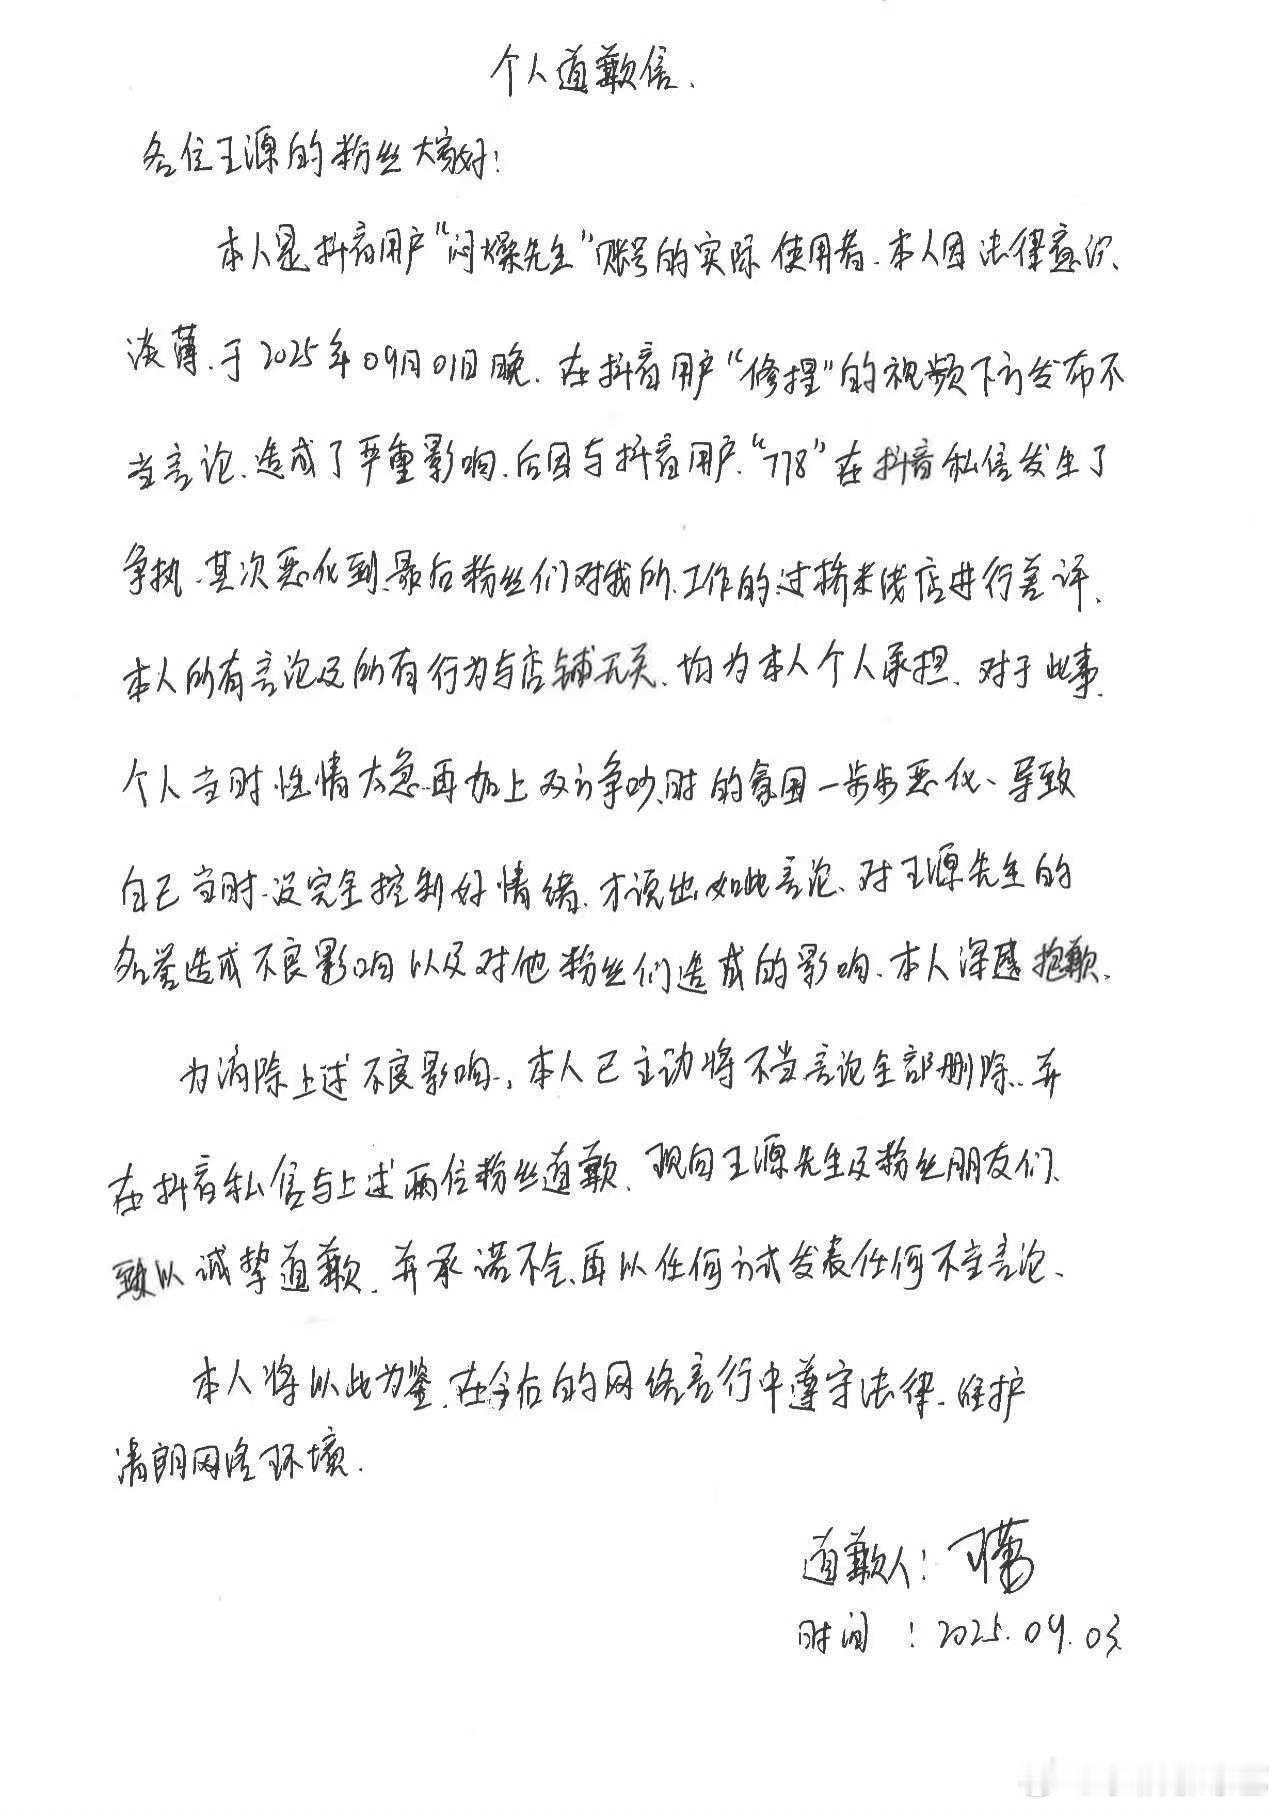 个人道歉信.
各位王源的粉丝大家好:
本人是抖音用户“闷燥先生”账号的实际使用者.本人因法律意识
淡薄.于2025年09月01日晚.在抖音用户“修捏”的视频下方发布不
当言论.造成了严重影响.后因与抖音用户.“778”在抖音私信发生了
争执.其次恶化到最后粉丝们对我所工作的过桥米线店进行差评.
本人所有言论及所有行为与店铺无关.均为本人个人承担.对于此事.
个人当时性情太急再加上双方争吵时的氛围一步步恶化、导致
自己当时没完全控制好情绪.才说出如此言论.对王源先生的
名誉造成不良影响以及对他粉丝们造成的影响.本人深感抱歉.
为消除上述不良影响.,本人已主动将不当言论全部删除.并
在抖音私信与上述两位粉丝道歉.现向王源先生及粉丝朋友们.
致以诚挚道歉.并承诺不会再以任何方式发表任何不当言论.
本人将以此为鉴.在今后的网络言行中遵守法律.维护
清朗网络环境.
道歉人:
时间:2025.09.03